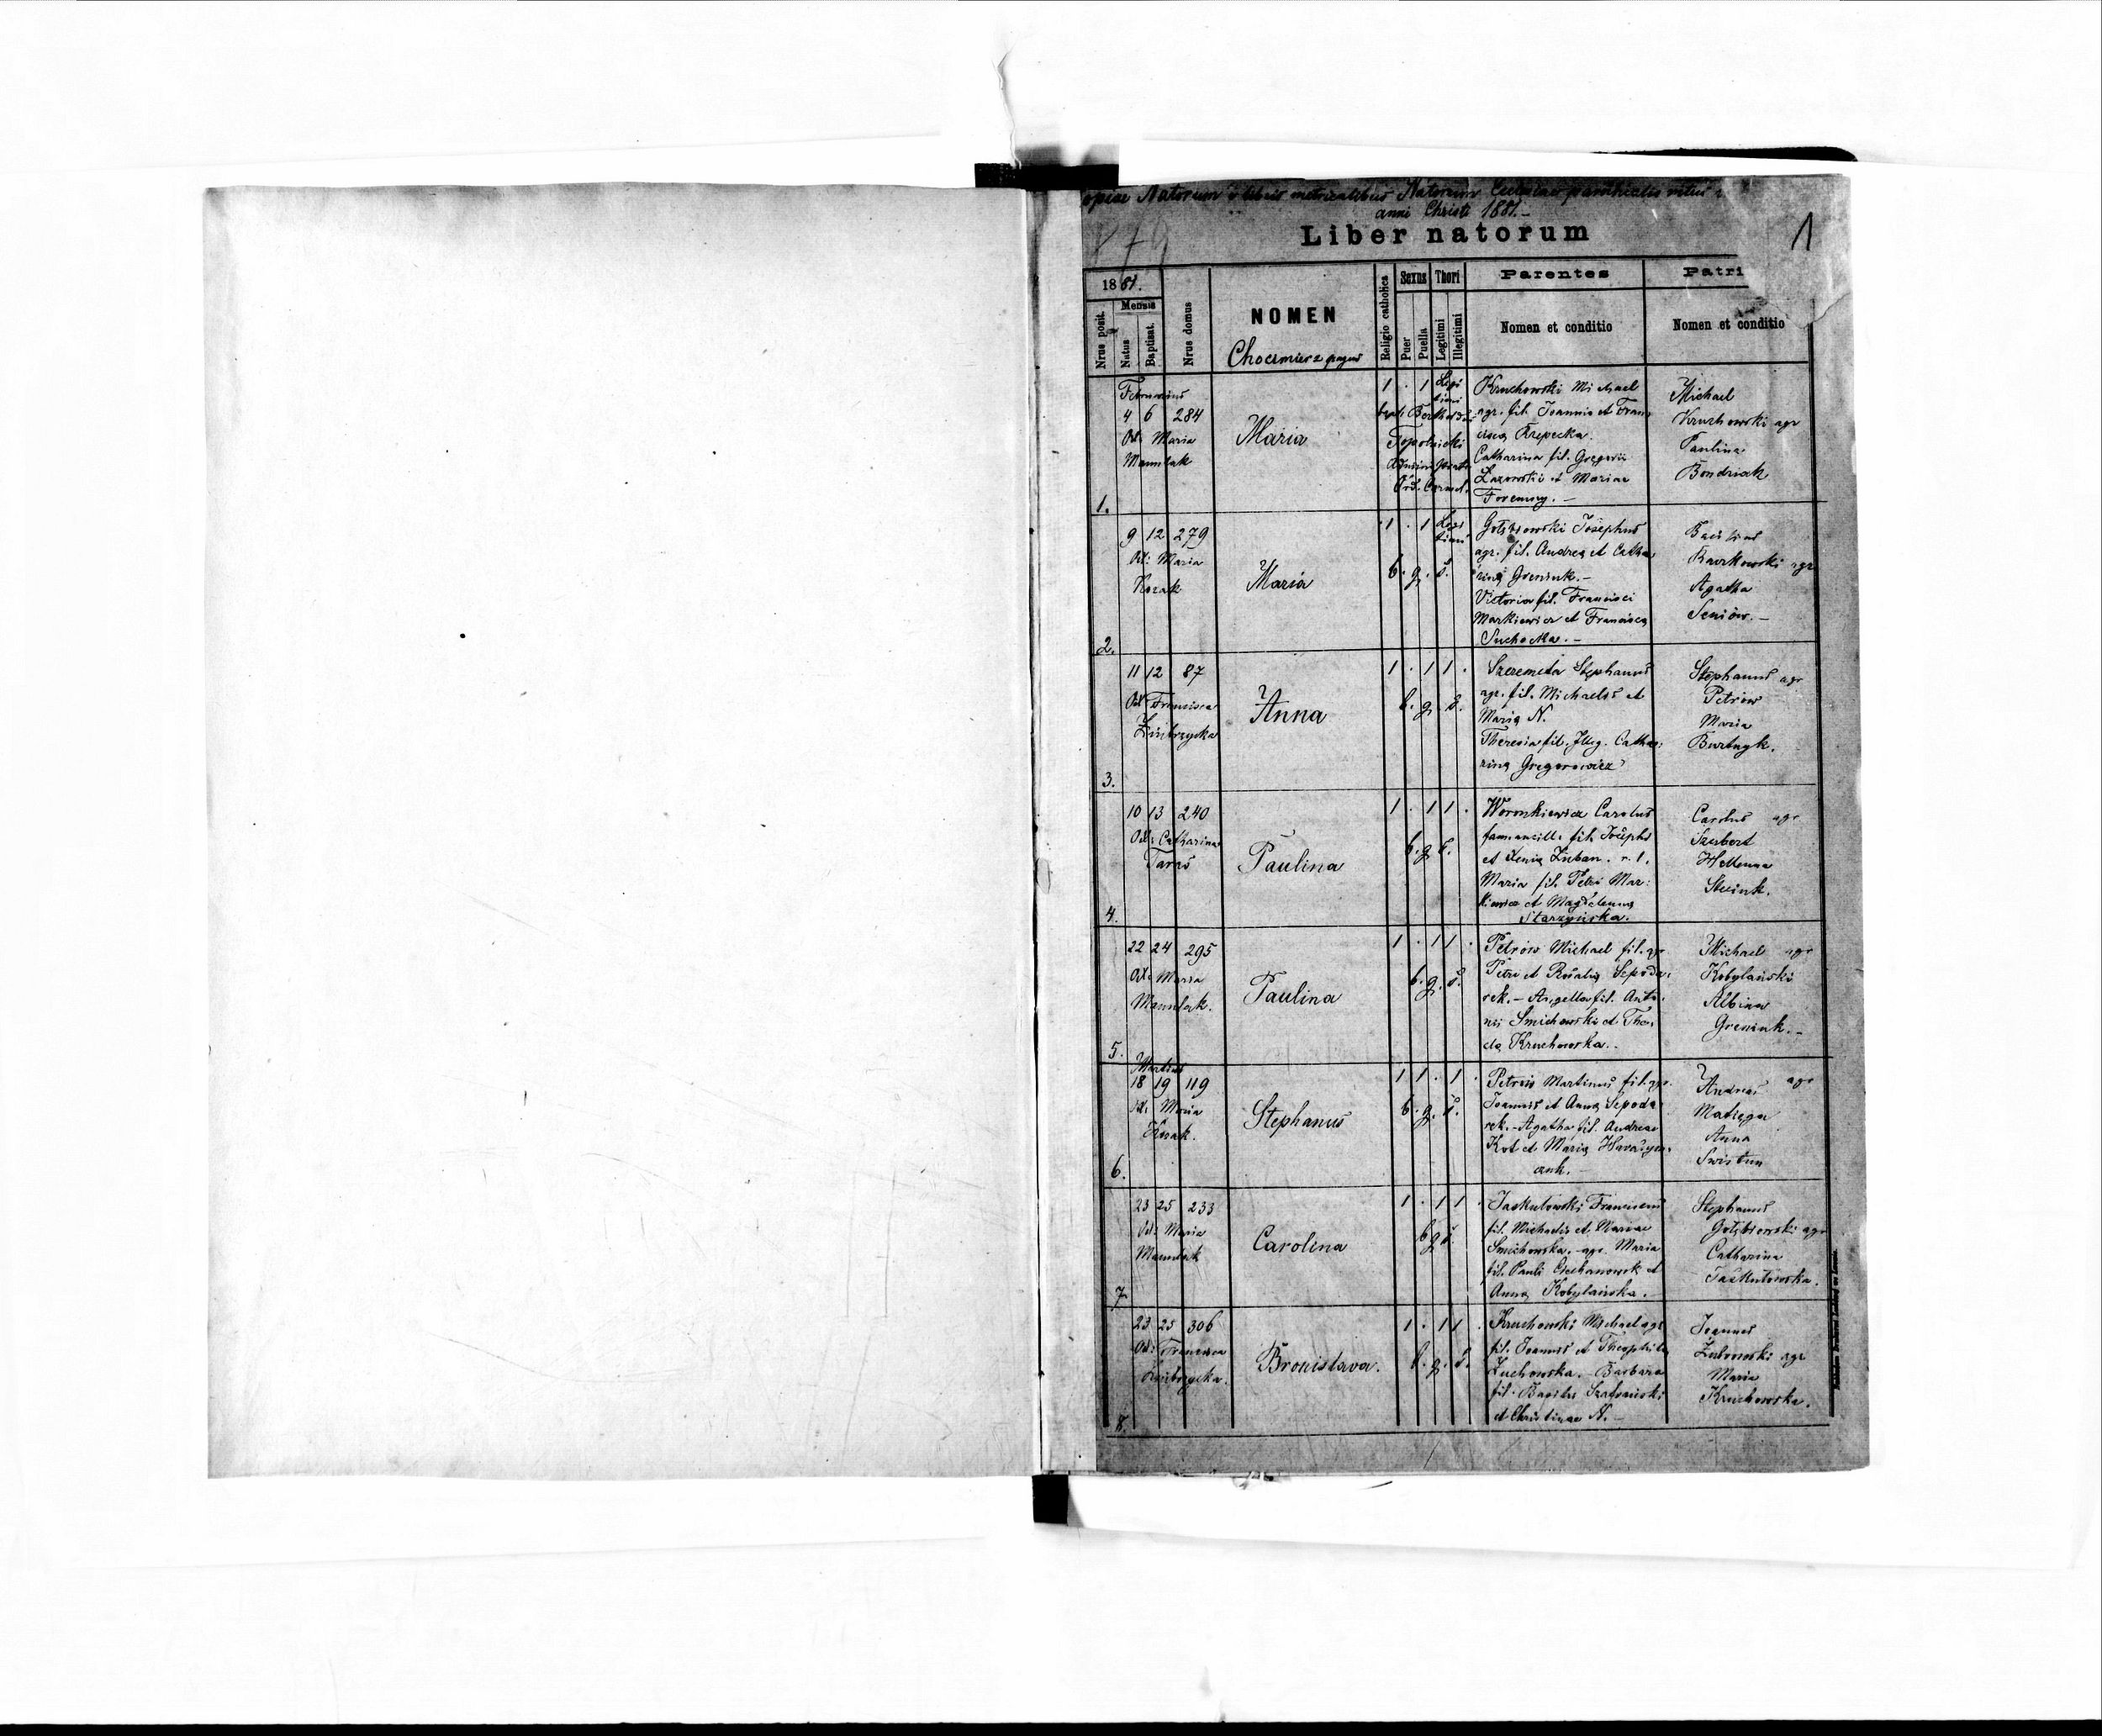 opiae Natorum e libris metricalibus Natorum Ecclesiae parochialis ritus
anni Christi 1881.-
Liber natorum
1
1881.
Mensis
Nrus posit.
Natus
Baptisat.
Nrus domus
NOMEN
Chocimierz pagus
Religio catholica
Sexus
Puer
Puella
Thori
Legitimi
Illegitimi
Parentes
Nomen et conditio
Patri
Nomen et conditio
1.
Februarius
4 6 284
Obs. Maria
Mannlak
Maria
1 . 1 Legi
timi
Topolnicki
Ord. Carmel.
Kruchowski Michael
agr. fil. Joannis et Fran
cisca Rzepecka.
Catharina fil. Gregorii
Lazowski et Mariae
Foremny. -
Michael
Kruchowski agr
Paulina
Bondriak
2.
9 12 279
Obs: Maria
Kozak
Maria
1 . 1 Legi
timi
b. g. s.
Gołębiowski Josephus
agr. fil. Andrea et Catha
rina Greniuk.-
Victoria fil. Francisci
Markiewicz et Francisca
Suchocka. -
Basilius
Kurkowski agr
Agatha
Seniów. -
3.
11 12 87
Obs. Francisca
Anna
1 . 1 1 .
b. g. s.
Szeremeta Stephanus
agr. fil. Michaelis et
Maria N.
Theresia fil. Illeg. Catha:
rina Gregorowicz
Stephanus agr
Petrów
Maria
Burtnyk.
4.
10 13 240
Obs: Catharina
Taras
Paulina
1 . 1 1 .
b. g. s.
Woronkiewicz Carolus
fil. Josephi
et Xenia Zuban. r. l.
Maria fil. Petri Mar:
kiewicz et Magdalenna
Starzyńska.
Carolus agr
Szubert
Hellenna
5.
22 24 295
Obs: Maria
Mannlak.
Paulina
1 . 1 1 .
b. g. s.
Petrów Michael fil. agr
Petri et Rosalia Sepoda:
rek. - Angella fil. Anto:
nii Smichowski et Theo
da Kruchowska..
Michael agr
Kobylański
Albina
Greniuk. -
6.
Martius
18 19 119
Obs. Maria
Kozak.
Stephanus
1 1 . 1 .
b. g. s.
Petrów Martinus fil. agr.
Joannis et Anna Sepoda
rek. - Agatha fil. Andreae
Kot et Maria
Andreas agr
Matięga
Anna
Swistun
7.
23 25 233
Obs: Maria
Mannlak
Carolina
1 . 1 1 .
b g s.
Jaskulowski Franciscus
fil. Michaelis et Mariae
Smichowska. - agr. Maria
fil. Pauli Ciechanowsk et
Anna Kobylańska.
Stephanus
Gołębiowski agr
Catharina
Jaskulowska.
8.
23 25 306
Obs: Francisca
Bronislava.
1 . 1 1 .
b. g. s.
Kruchowski Michael agr
fil. Joannis et Theophila
Zuchowska. Barbara
fil. Basilii Szafrański
et Christinae N. -
Joannes
Żubrowski agr
Maria
Kruchowska.